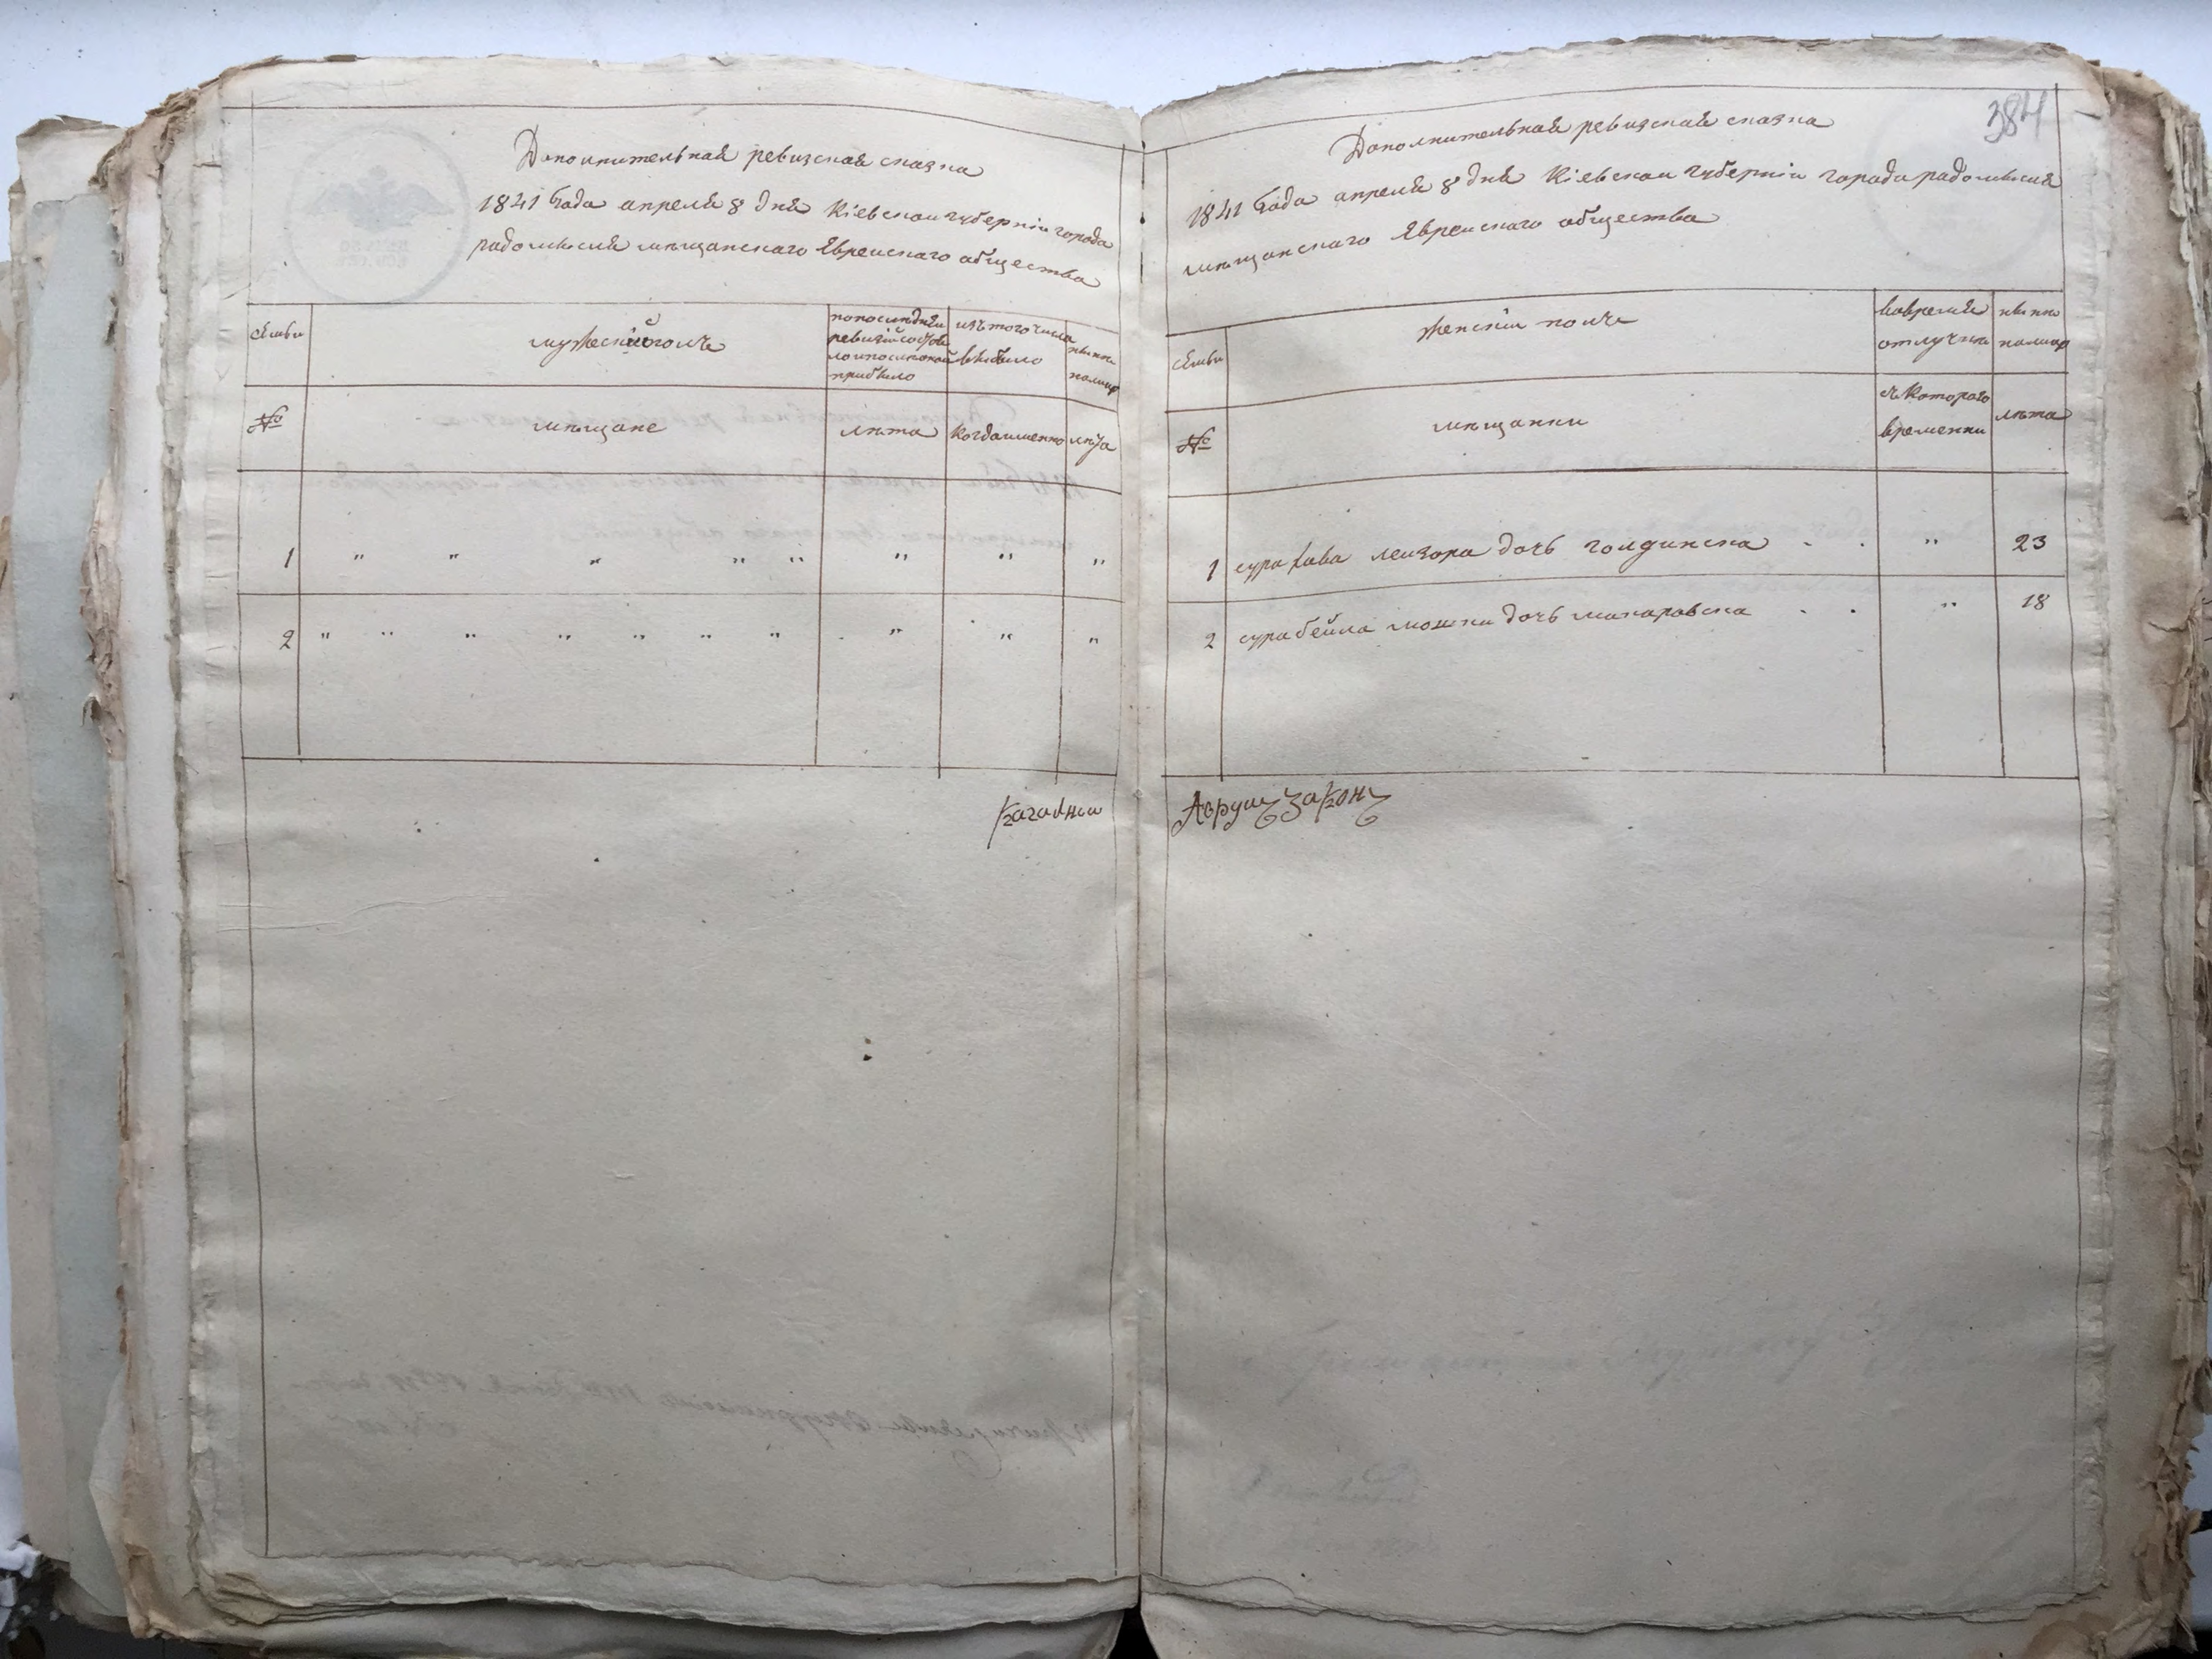 Дополнительная ревизская сказка
1841 Года апреля 8 дня Кіевскои губерніи города
радомысля мѣщанскаго Евреискаго общества
сѣмьи
мужескій полъ
попоследней
ревизіи состоя
ло и после оной
прибыло
изъ того числа
выбыло
нынѣ
налицо
№
мѣщане
лѣта
когда именно
лѣта
1 " " " " " " " "
2 " " " " " " " " " "
Кагальныи
384
Дополнительная ревизская сказка
1841 Года апреля 8 дня Кіевскои губерніи города радомысля
мѣщанскаго Евреискаго общества
сѣмьи
женскіи полъ
вовремян
отлучкѣ
нынѣ
налицо
№
мѣщанки
съ Котораго
времянни
лѣта
1 сура хава леизора дочь голдинска . . " 23
2 сура бейла мошки дочь макаровска . . " 18
Аврумъ Законъ